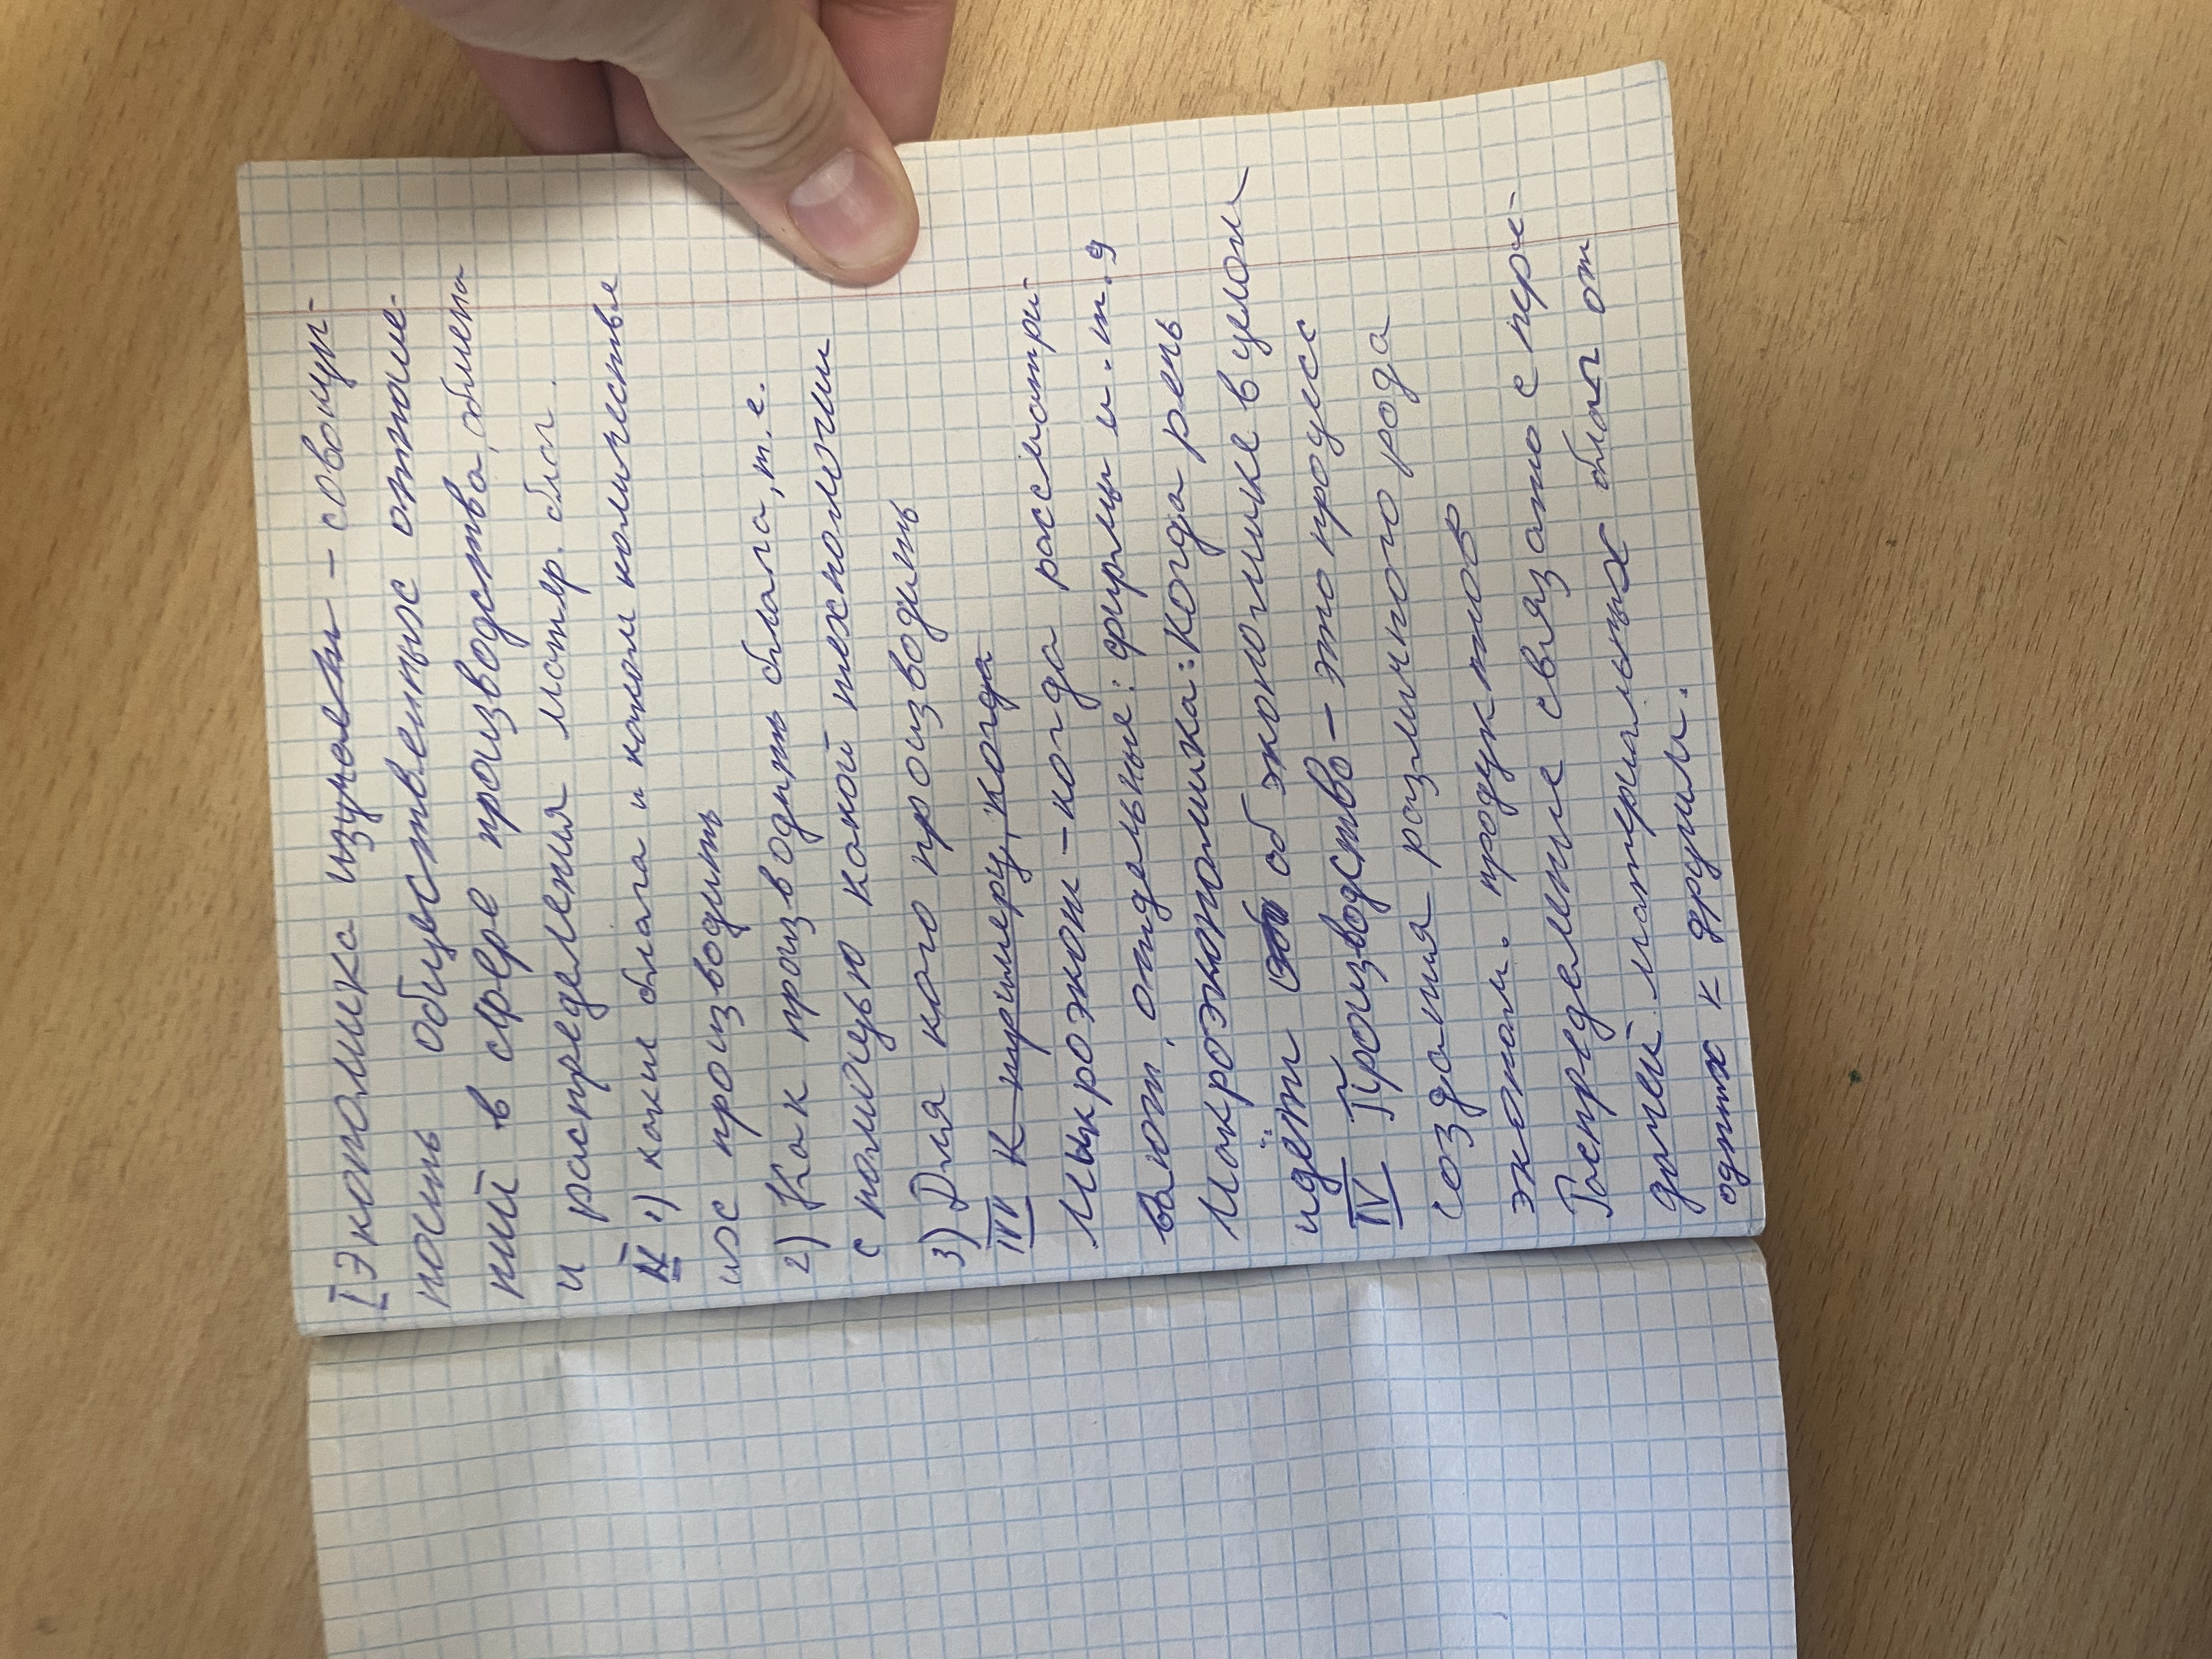 I Экономика изучает – совокуп-
ность общественных отноше-
ний в сфере производства, обмена
и распределения матер. благ.
II 1) какие блага и каком количестве
их производить
2) Как производить блага, т. е.
с помощью какой технологии
3) Для кого производить
III К примеру, когда
Микроэконом – когда рассматри
вают, отдельные: фирмы и. т. д
Макроэкономика: Когда речь
идёт об экономике в целом
IV Производство – это процесс
создания различного рода
эконом. продуктов
Распределение связано с пере-
дачей материальных благ от
одних к другим.